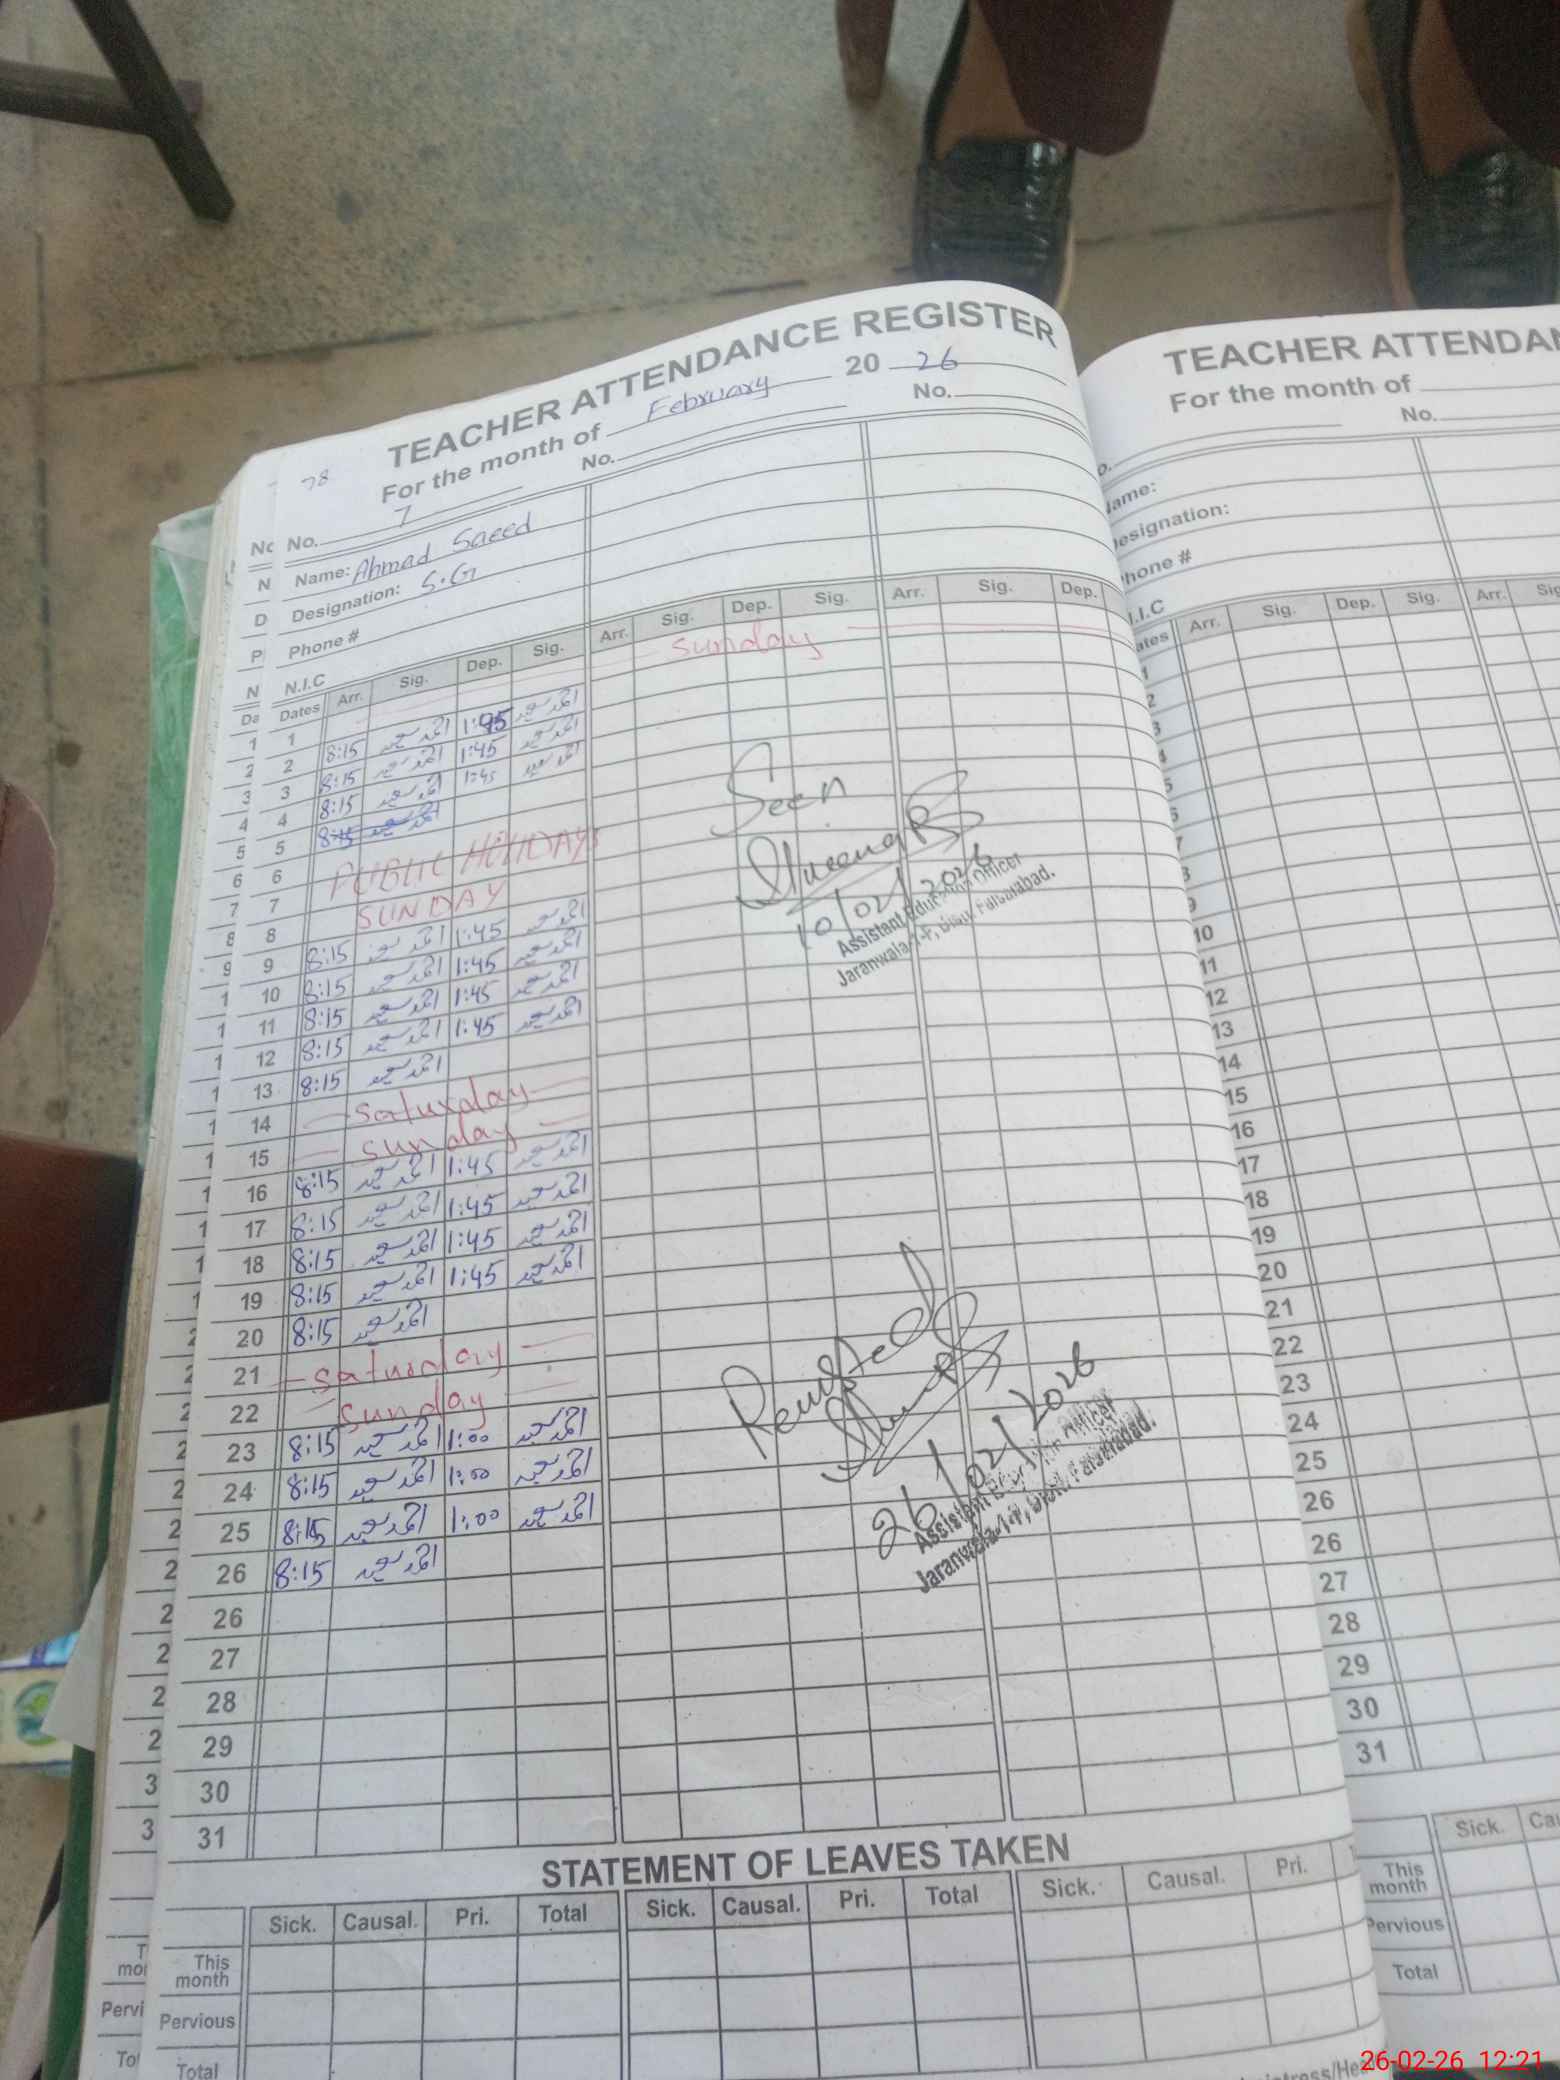 TEACHER ATTENDANCE REGISTER
For the month of February 2026
78
No. 7 No. No.
Name: Ahmad Saeed
Designation: S.G
Phone #
N.I.C
Dates Arr. Sig. Dep. Sig. Arr. Sig. Dep. Sig. Arr. Sig. Dep.
1 Sunday
2 8:15 احمد سعید 1:45 احمد سعید
3 8:15 احمد سعید 1:45 احمد سعید
4 8:15 احمد سعید 1:45 احمد سعید
5 8:15 احمد سعید
6 PUBLIC HOLIDAYS
7
8 SUNDAY
9 8:15 احمد سعید 1:45 احمد سعید
10 8:15 احمد سعید 1:45 احمد سعید
11 8:15 احمد سعید 1:45 احمد سعید
12 8:15 احمد سعید 1:45 احمد سعید
13 8:15 احمد سعید
14 Saturday
15 Sunday
16 8:15 احمد سعید 1:45 احمد سعید
17 8:15 احمد سعید 1:45 احمد سعید
18 8:15 احمد سعید 1:45 احمد سعید
19 8:15 احمد سعید 1:45 احمد سعید
20 8:15 احمد سعید
21 Saturday
22 Sunday
23 8:15 احمد سعید 1:00 احمد سعید
24 8:15 احمد سعید 1:00 احمد سعید
25 8:15 احمد سعید 1:00 احمد سعید
26 8:15 احمد سعید
26
27
28
29
30
31
Seen
10/02/2026
Assistant Education Officer
Jaranwala Distt. Faisalabad.
26/02/2026
Assistant Officer
Jaranwala Distt. Faisalabad.
STATEMENT OF LEAVES TAKEN
Sick. Causal. Pri. Total Sick. Causal. Pri. Total Sick. Causal. Pri.
This month
Pervious
Total
TEACHER ATTENDA
For the month of
No.
Name:
Designation:
Phone #
I.C
ates Arr. Sig. Dep. Sig. Arr. Sig
1
2
3
4
5
6
7
8
9
10
11
12
13
14
15
16
17
18
19
20
21
22
23
24
25
26
26
27
28
29
30
31
Sick. Cau
This month
Pervious
Total
26-02-26 12:21